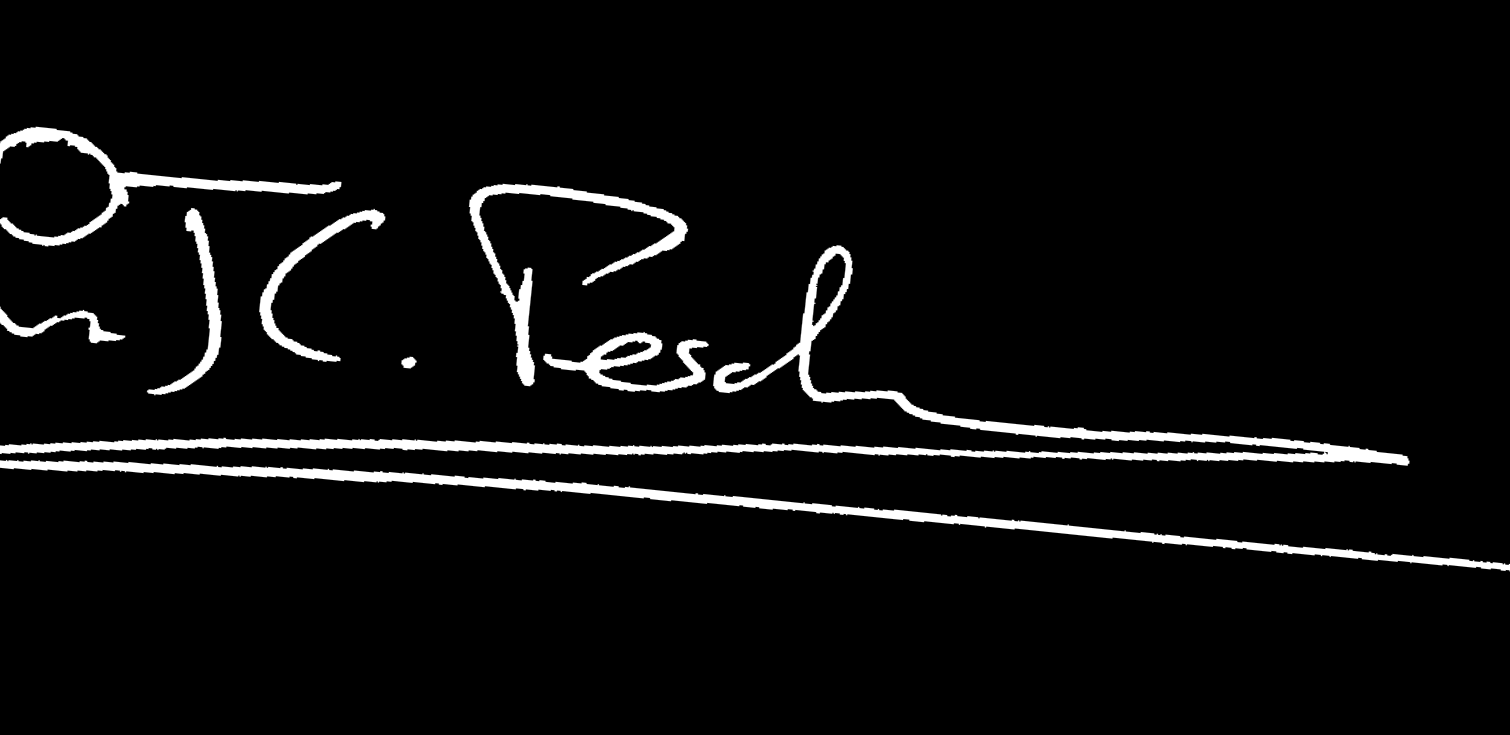 JC. Pesch